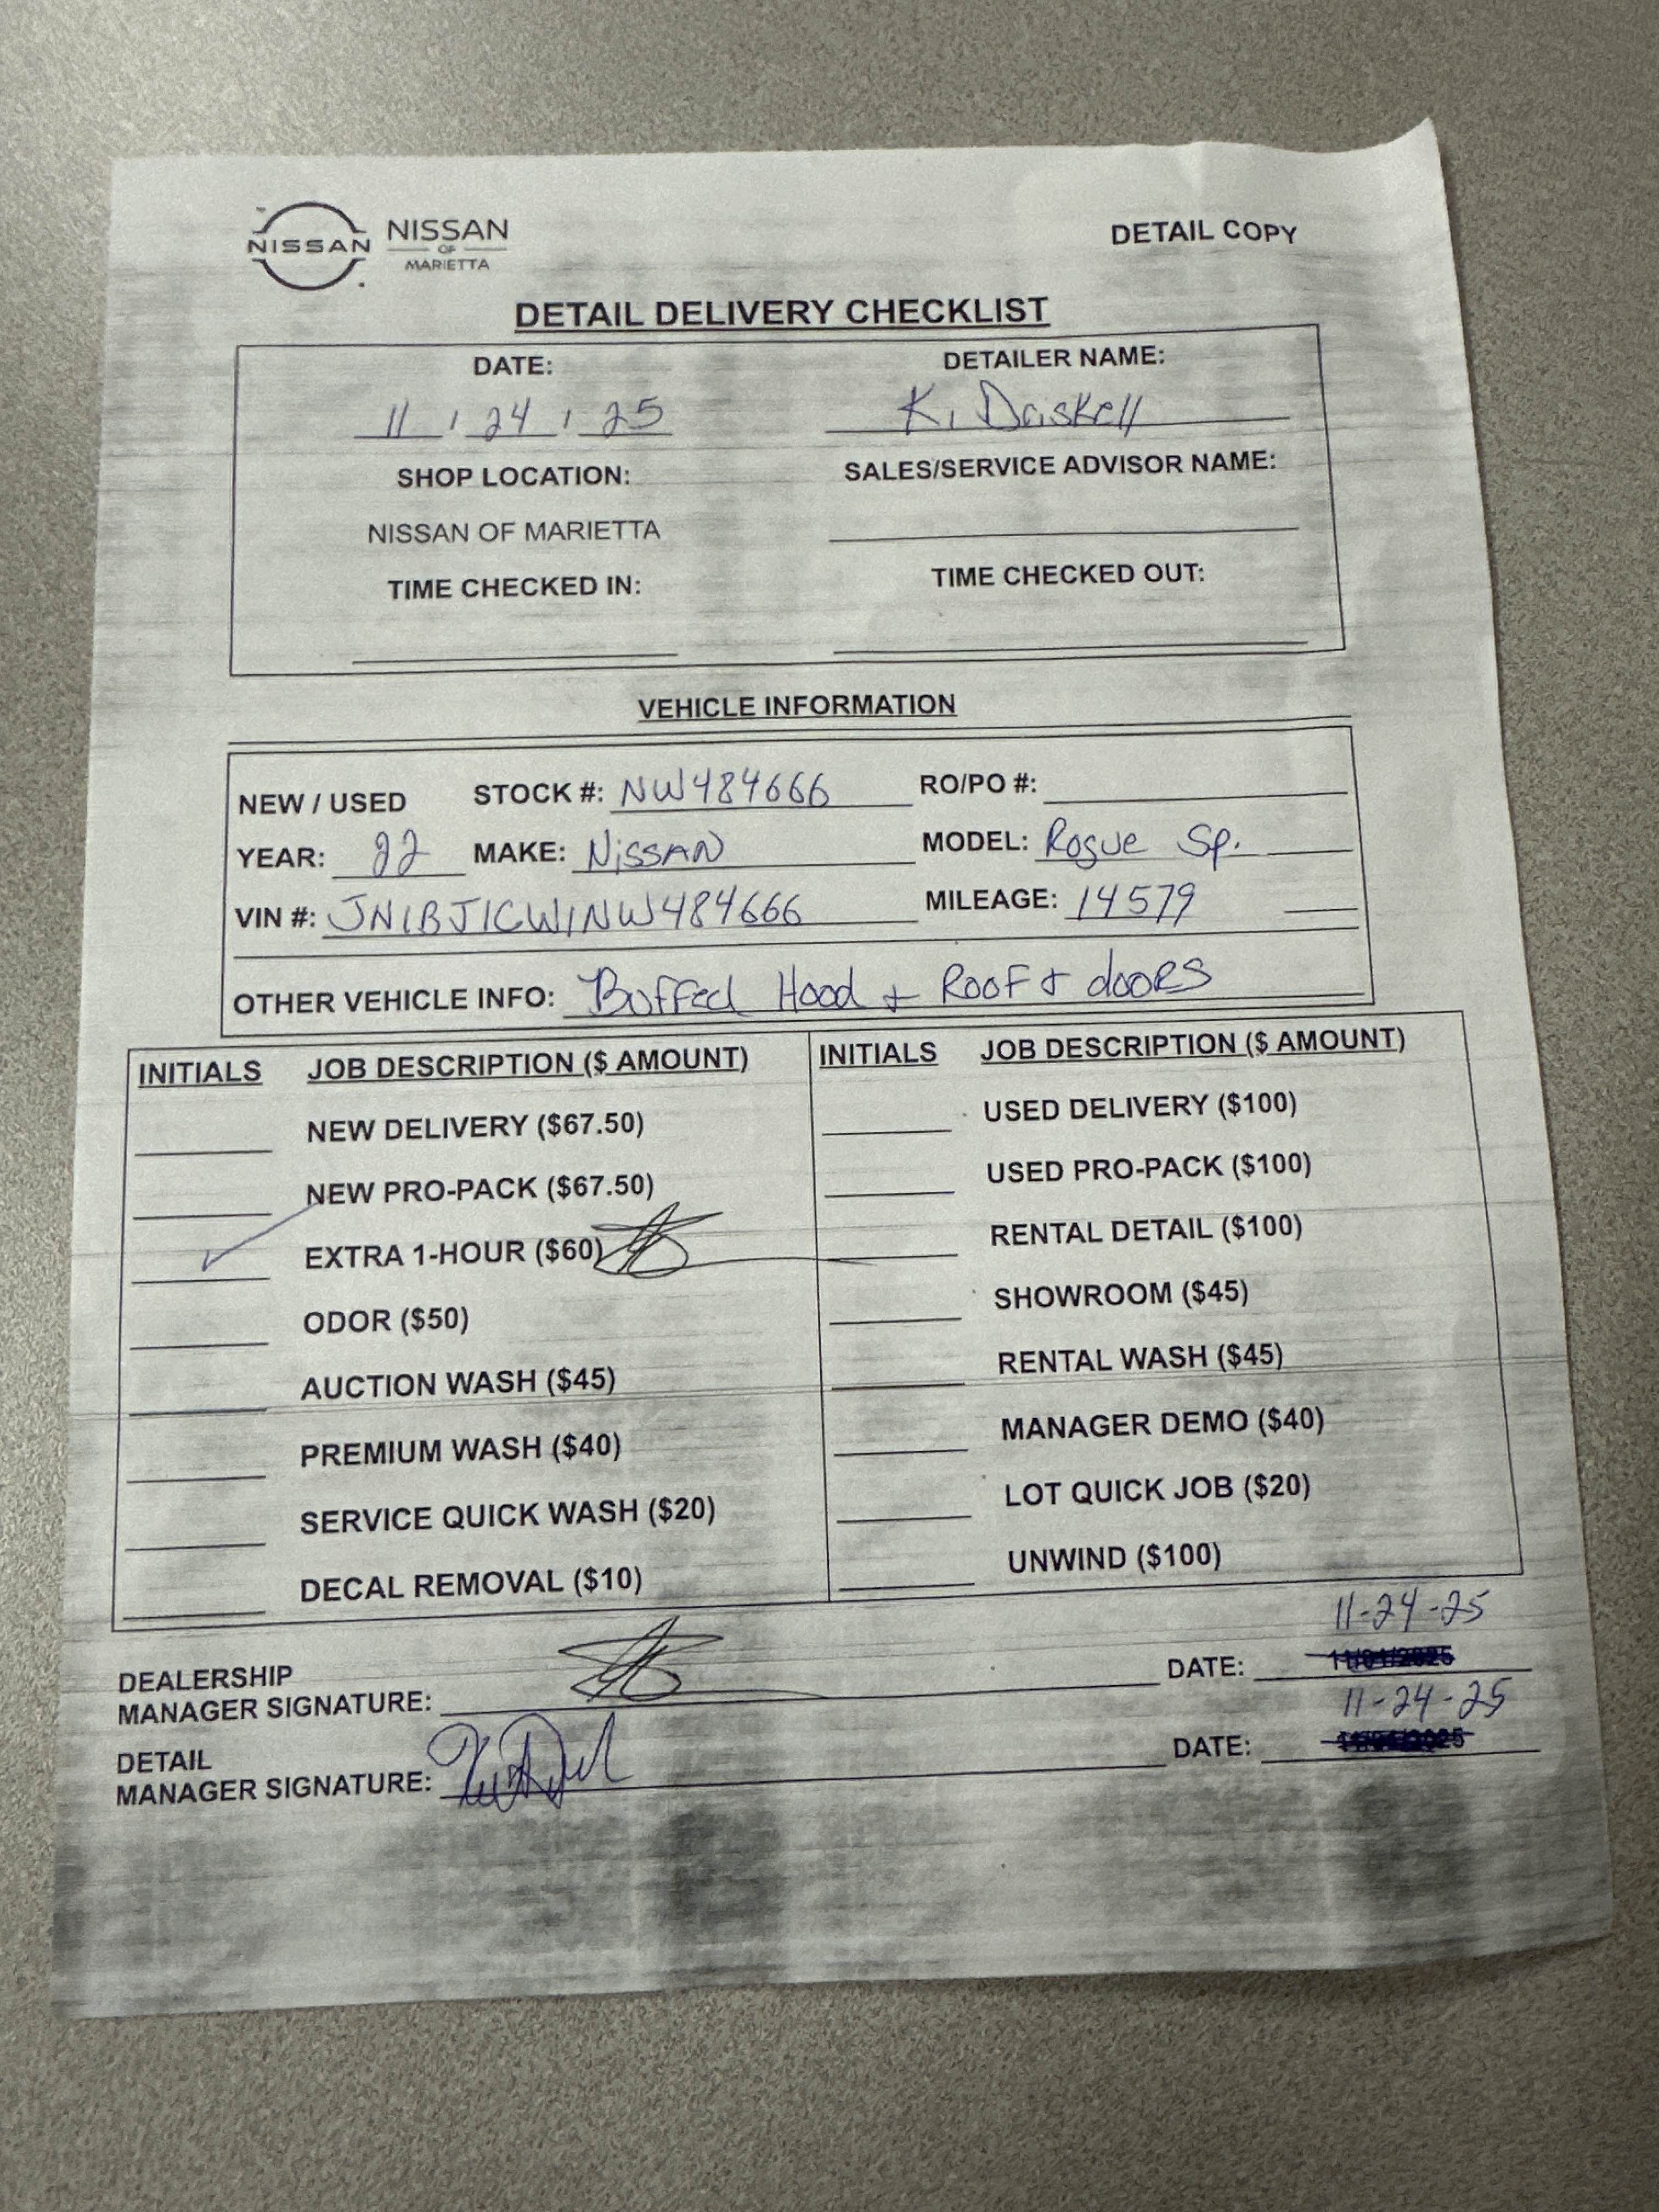 NISSAN NISSAN OF MARIETTA
DETAIL COPY
DETAIL DELIVERY CHECKLIST
DATE: DETAILER NAME:
11 / 24 / 25 K. Daskell
SHOP LOCATION: SALES/SERVICE ADVISOR NAME:
NISSAN OF MARIETTA
TIME CHECKED IN: TIME CHECKED OUT:
VEHICLE INFORMATION
NEW / USED STOCK #: NW484666 RO/PO #:
YEAR: 22 MAKE: NiSSAN MODEL: Rogue Sp.
VIN #: JN1BJ1CW1NW484666 MILEAGE: 14579
OTHER VEHICLE INFO: Buffed Hood + Roof + dooRS
INITIALS JOB DESCRIPTION ($ AMOUNT) INITIALS JOB DESCRIPTION ($ AMOUNT)
NEW DELIVERY ($67.50) USED DELIVERY ($100)
NEW PRO-PACK ($67.50) USED PRO-PACK ($100)
EXTRA 1-HOUR ($60) RENTAL DETAIL ($100)
ODOR ($50) SHOWROOM ($45)
AUCTION WASH ($45) RENTAL WASH ($45)
PREMIUM WASH ($40) MANAGER DEMO ($40)
SERVICE QUICK WASH ($20) LOT QUICK JOB ($20)
DECAL REMOVAL ($10) UNWIND ($100)
11-24-25
DEALERSHIP
MANAGER SIGNATURE: DATE:
11-24-25
DETAIL
MANAGER SIGNATURE: DATE: